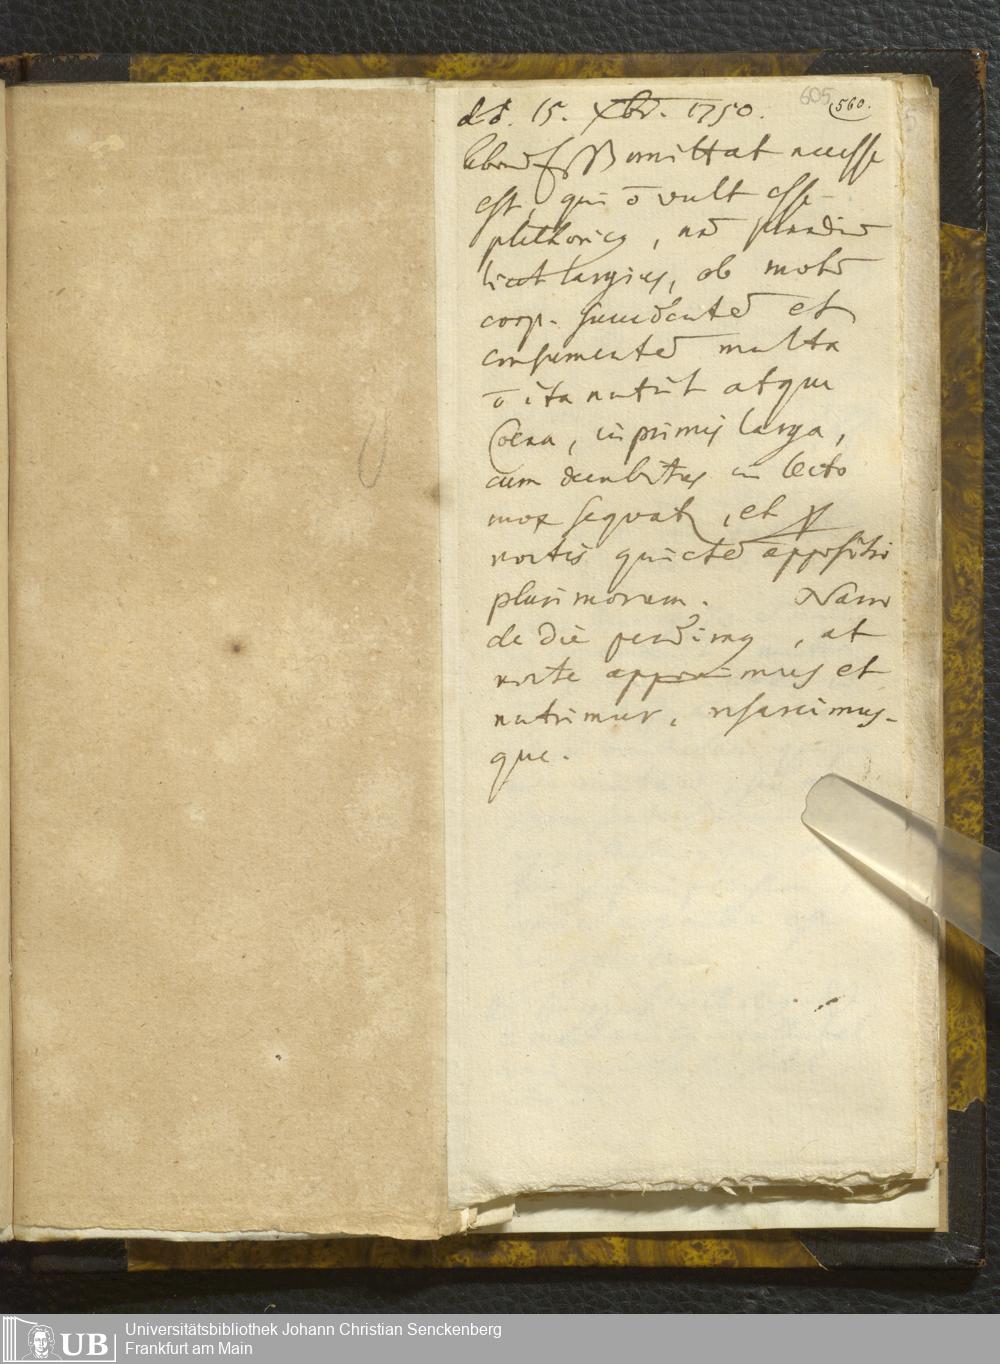 605
560.
d. 15. Xbr. 1750.
omittat necesse
est, qui ō vult esse
plethoricus,
licet largius, ob motū
corp. succedentē et
consumentē multa
ō ita nutrit atque
Coena, inprimis larga,
cum decubitus in lecto
mox sequat, et
noctis quietē appositio
plurimorum. Nam
de die perdimus, at
nocte apponimus et
nutrimur, resarcimus-
que.
UB
Universitätsbibliothek Johann Christian Senckenberg
Frankfurt am Main